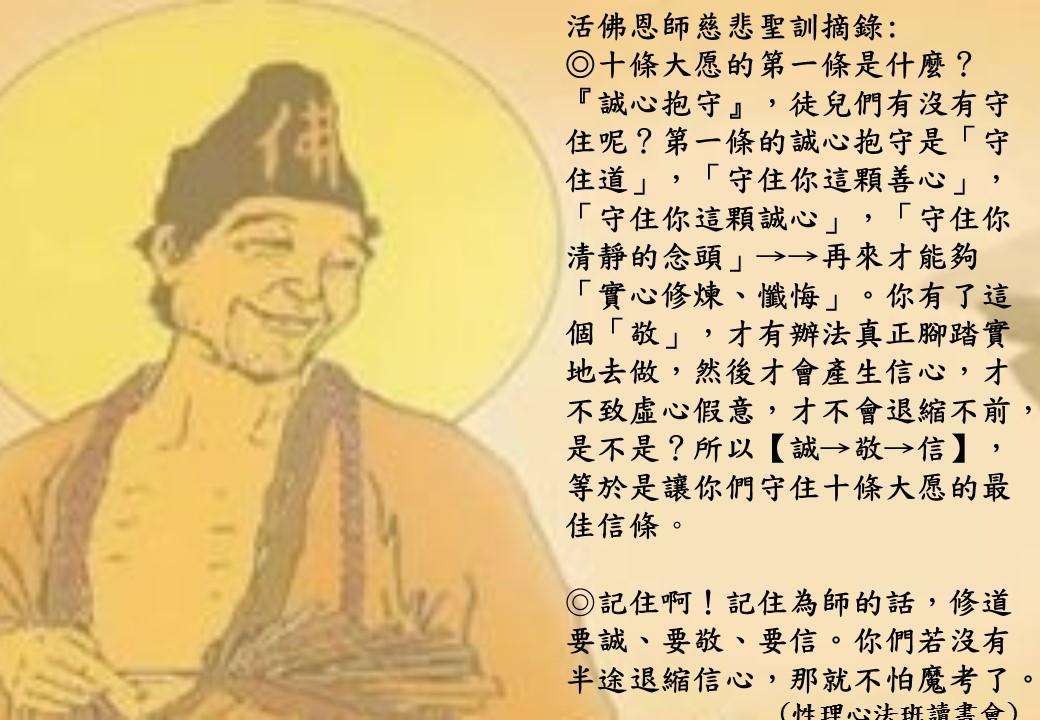 佛
活佛恩師慈悲聖訓摘錄:
◎十條大愿的第一條是什麼？
『誠心抱守』，徒兒們有沒有守
住呢？第一條的誠心抱守是「守
住道」，「守住你這顆善心」，
「守住你這顆誠心」，「守住你
清靜的念頭」→→再來才能夠
「實心修煉、懺悔」。你有了這
個「敬」，才有辦法真正腳踏實
地去做，然後才會產生信心，才
不致虛心假意，才不會退縮不前，
是不是？所以【誠→敬→信】，
等於是讓你們守住十條大愿的最
佳信條。
◎記住啊！記住為師的話，修道
要誠、要敬、要信。你們若沒有
半途退縮信心，那就不怕魔考了。
(性理心法班讀書會)